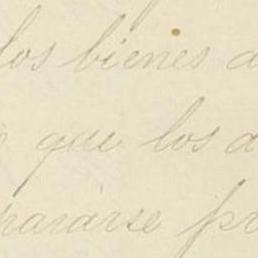 los bienes
que los
pararse